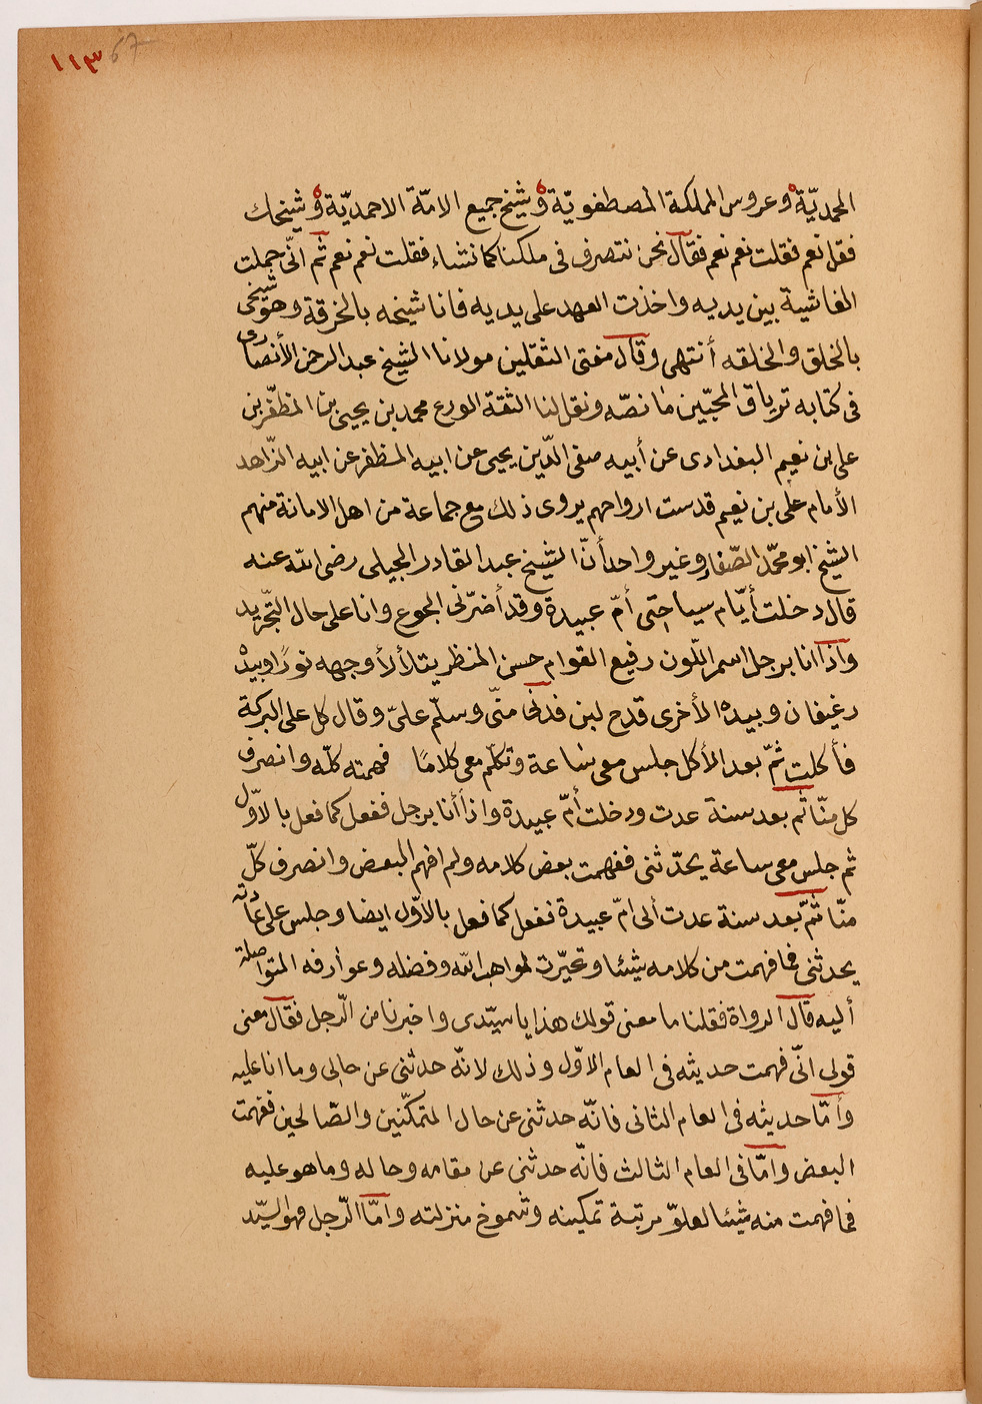 ١١٣ 67
المحمديّة وعروس المملكة المصطفويّة وشيخ جميع الامّة الاحمديّة وشيخك
فقل نعم فقلت نعم نعم فقال نحن نتصرف فى ملكنا كما نشاء فقلت نعم نعم ثم انّى حملت
الغاشية بين يديه واخذت العهد على يديه فانا شيخه بالخرقة وهو شيخى
بالخلق والخلقه أنتهى وقال مفتى الثقلين مولانا الشيخ عبد الرحمن الأنصارى
فى كتابه ترياق المحبّين ما نصّه ونقل لنا الثقة الورع محمد بن يحيى بن المظفّر بن
على بن نعيم البغدادى عن أبيه صفى الدّين يحيى عن ابيه المظفر عن ابيه الزّاهد
الأمام على بن نعيم قدست ارواحهم يروى ذلك مع جماعة من اهل الامانة منهم
الشيخ ابو محمّد الصّفار وغير واحد أنّ الشيخ عبد القادر الجيلى رضى الله عنه
قال دخلت أيّام سياحتى أمّ عبيدة وقد أضرّنى الجوع وانا على حال التّجريد
واذا انا برجل اسمر اللّون رفيع القوام حسن المنظر يتلألأ وجهه نورًا وبيده
رغيفان وبيده الأخرى قدح لبن فدنى منّى وسلّم علىّ وقال كل على البركة
فأكلت ثمّ بعد الأكل جلس معى ساعة وتكلّم معى كلامًا فهمته كلّه وانصرف
كل منّا ثم بعد سنة عدت ودخلت أمّ عبيدة واذا أنا برجل ففعل كما فعل بالاوّل
ثم جلس معى ساعة يحدّثنى ففهمت بعض كلامه ولم افهم البعض وانصرف كلّ
منّا ثمّ بعد سنة عدت ألى امّ عبيدة ففعل كما فعل بالأوّل ايضا وجلس على عادته
يحدثنى فما فهمت من كلامه شيئا وتحيّرت لمواهب الله وفضله وعوارفه المتواصلة
أليه قال الرواة فقلنا ما معنى قولك هذا يا سيّدى واخبرنا من الرّجل فقال معنى
قولى انّى فهمت حديثه فى العام الاوّل وذلك لانّه حدثنى عن حالى وما انا عليه
وأمّا حديثه فى العام الثانى فانّه حدثنى عن حال المتمكّنين والصّالحين ففهمت
البعض وامّا فى العام الثالث فانّه حدثنى عن مقامه وحاله وما هو عليه
فما فهمت منه شيئا لعلوّ مرتبة تمكينه وشموخ منزلته وامّا الرّجل فهو السيّد